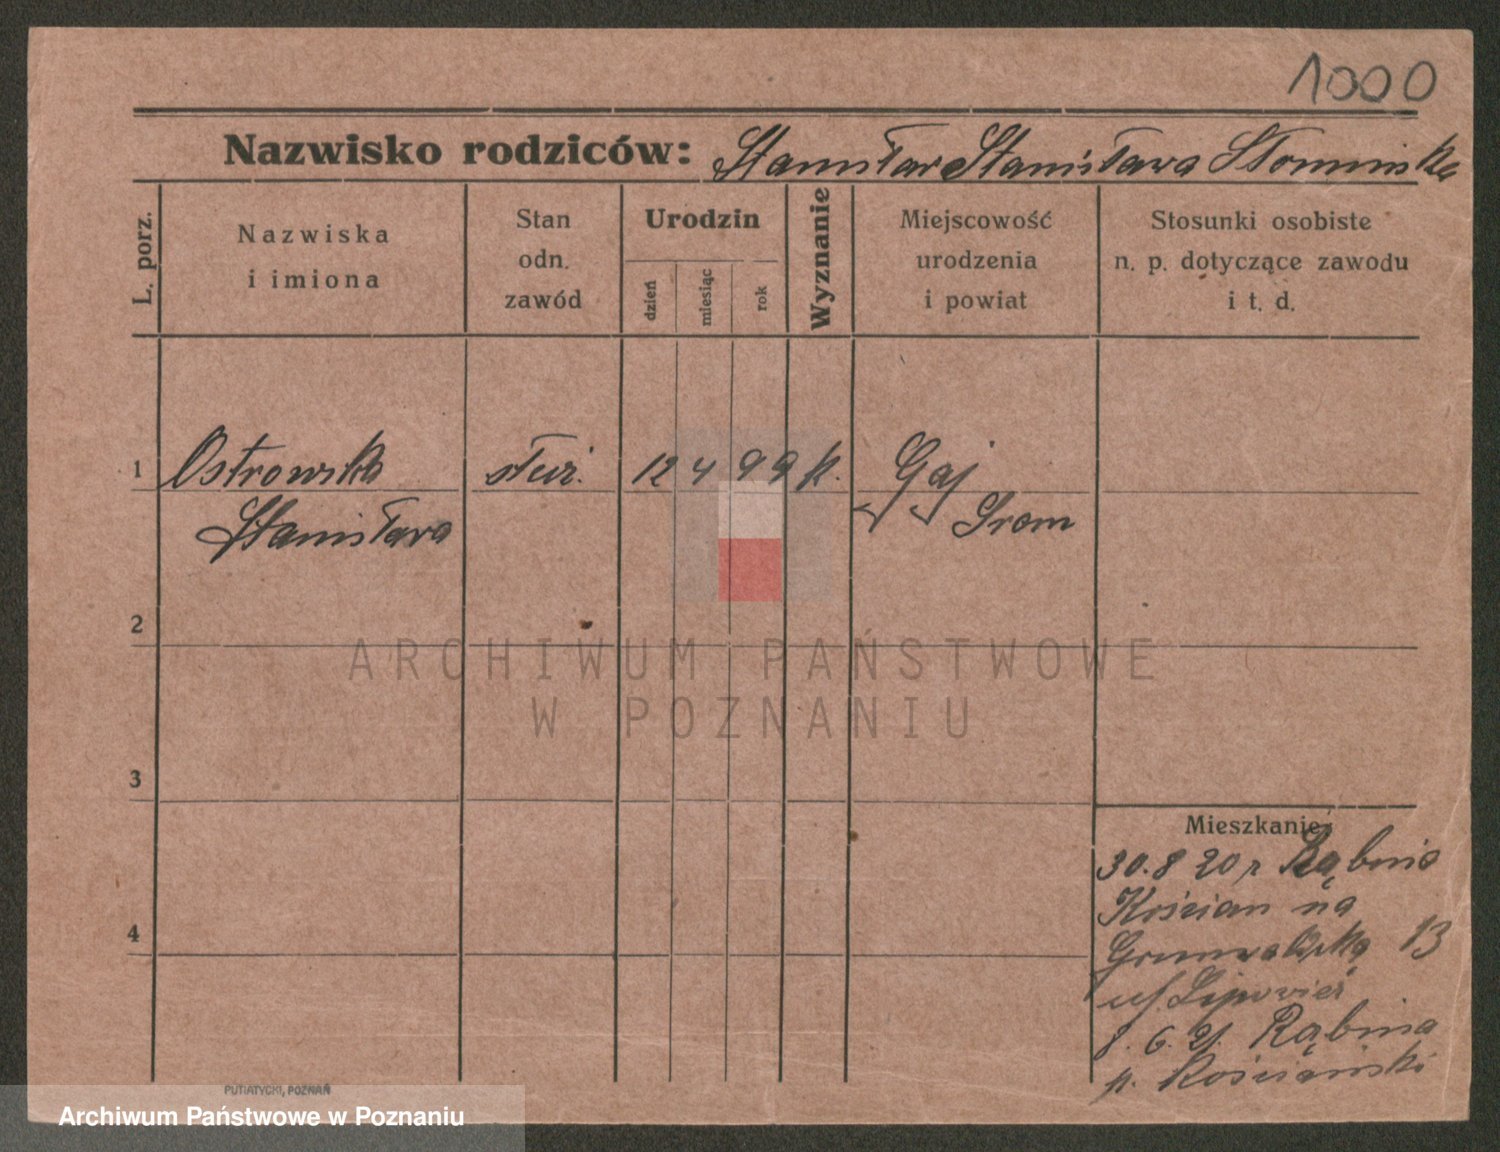 1000
Nazwisko rodziców: Stanisław Stanisława Słomińska
L. porz.
Nazwiska
i imiona
Stan
odn.
zawód
Urodzin
dzień
miesiąc
rok
Wyznanie
Miejscowość
urodzenia
i powiat
Stosunki osobiste
n. p. dotyczące zawodu
i t. d.
1 Ostrowska służ. 12 4 99 k. Gaj
Stanisława Śrem
2
ARCHIWUM PAŃSTWOWE
W POZNANIU
3
Mieszkanie:
30.8 20 r Rąbnia
Kościan na
4
Grunwaldzką 13
8. 6. 21. Rąbnia
p. Kościański
PUTIATYCKI, POZNAŃ
Archiwum Państwowe w Poznaniu